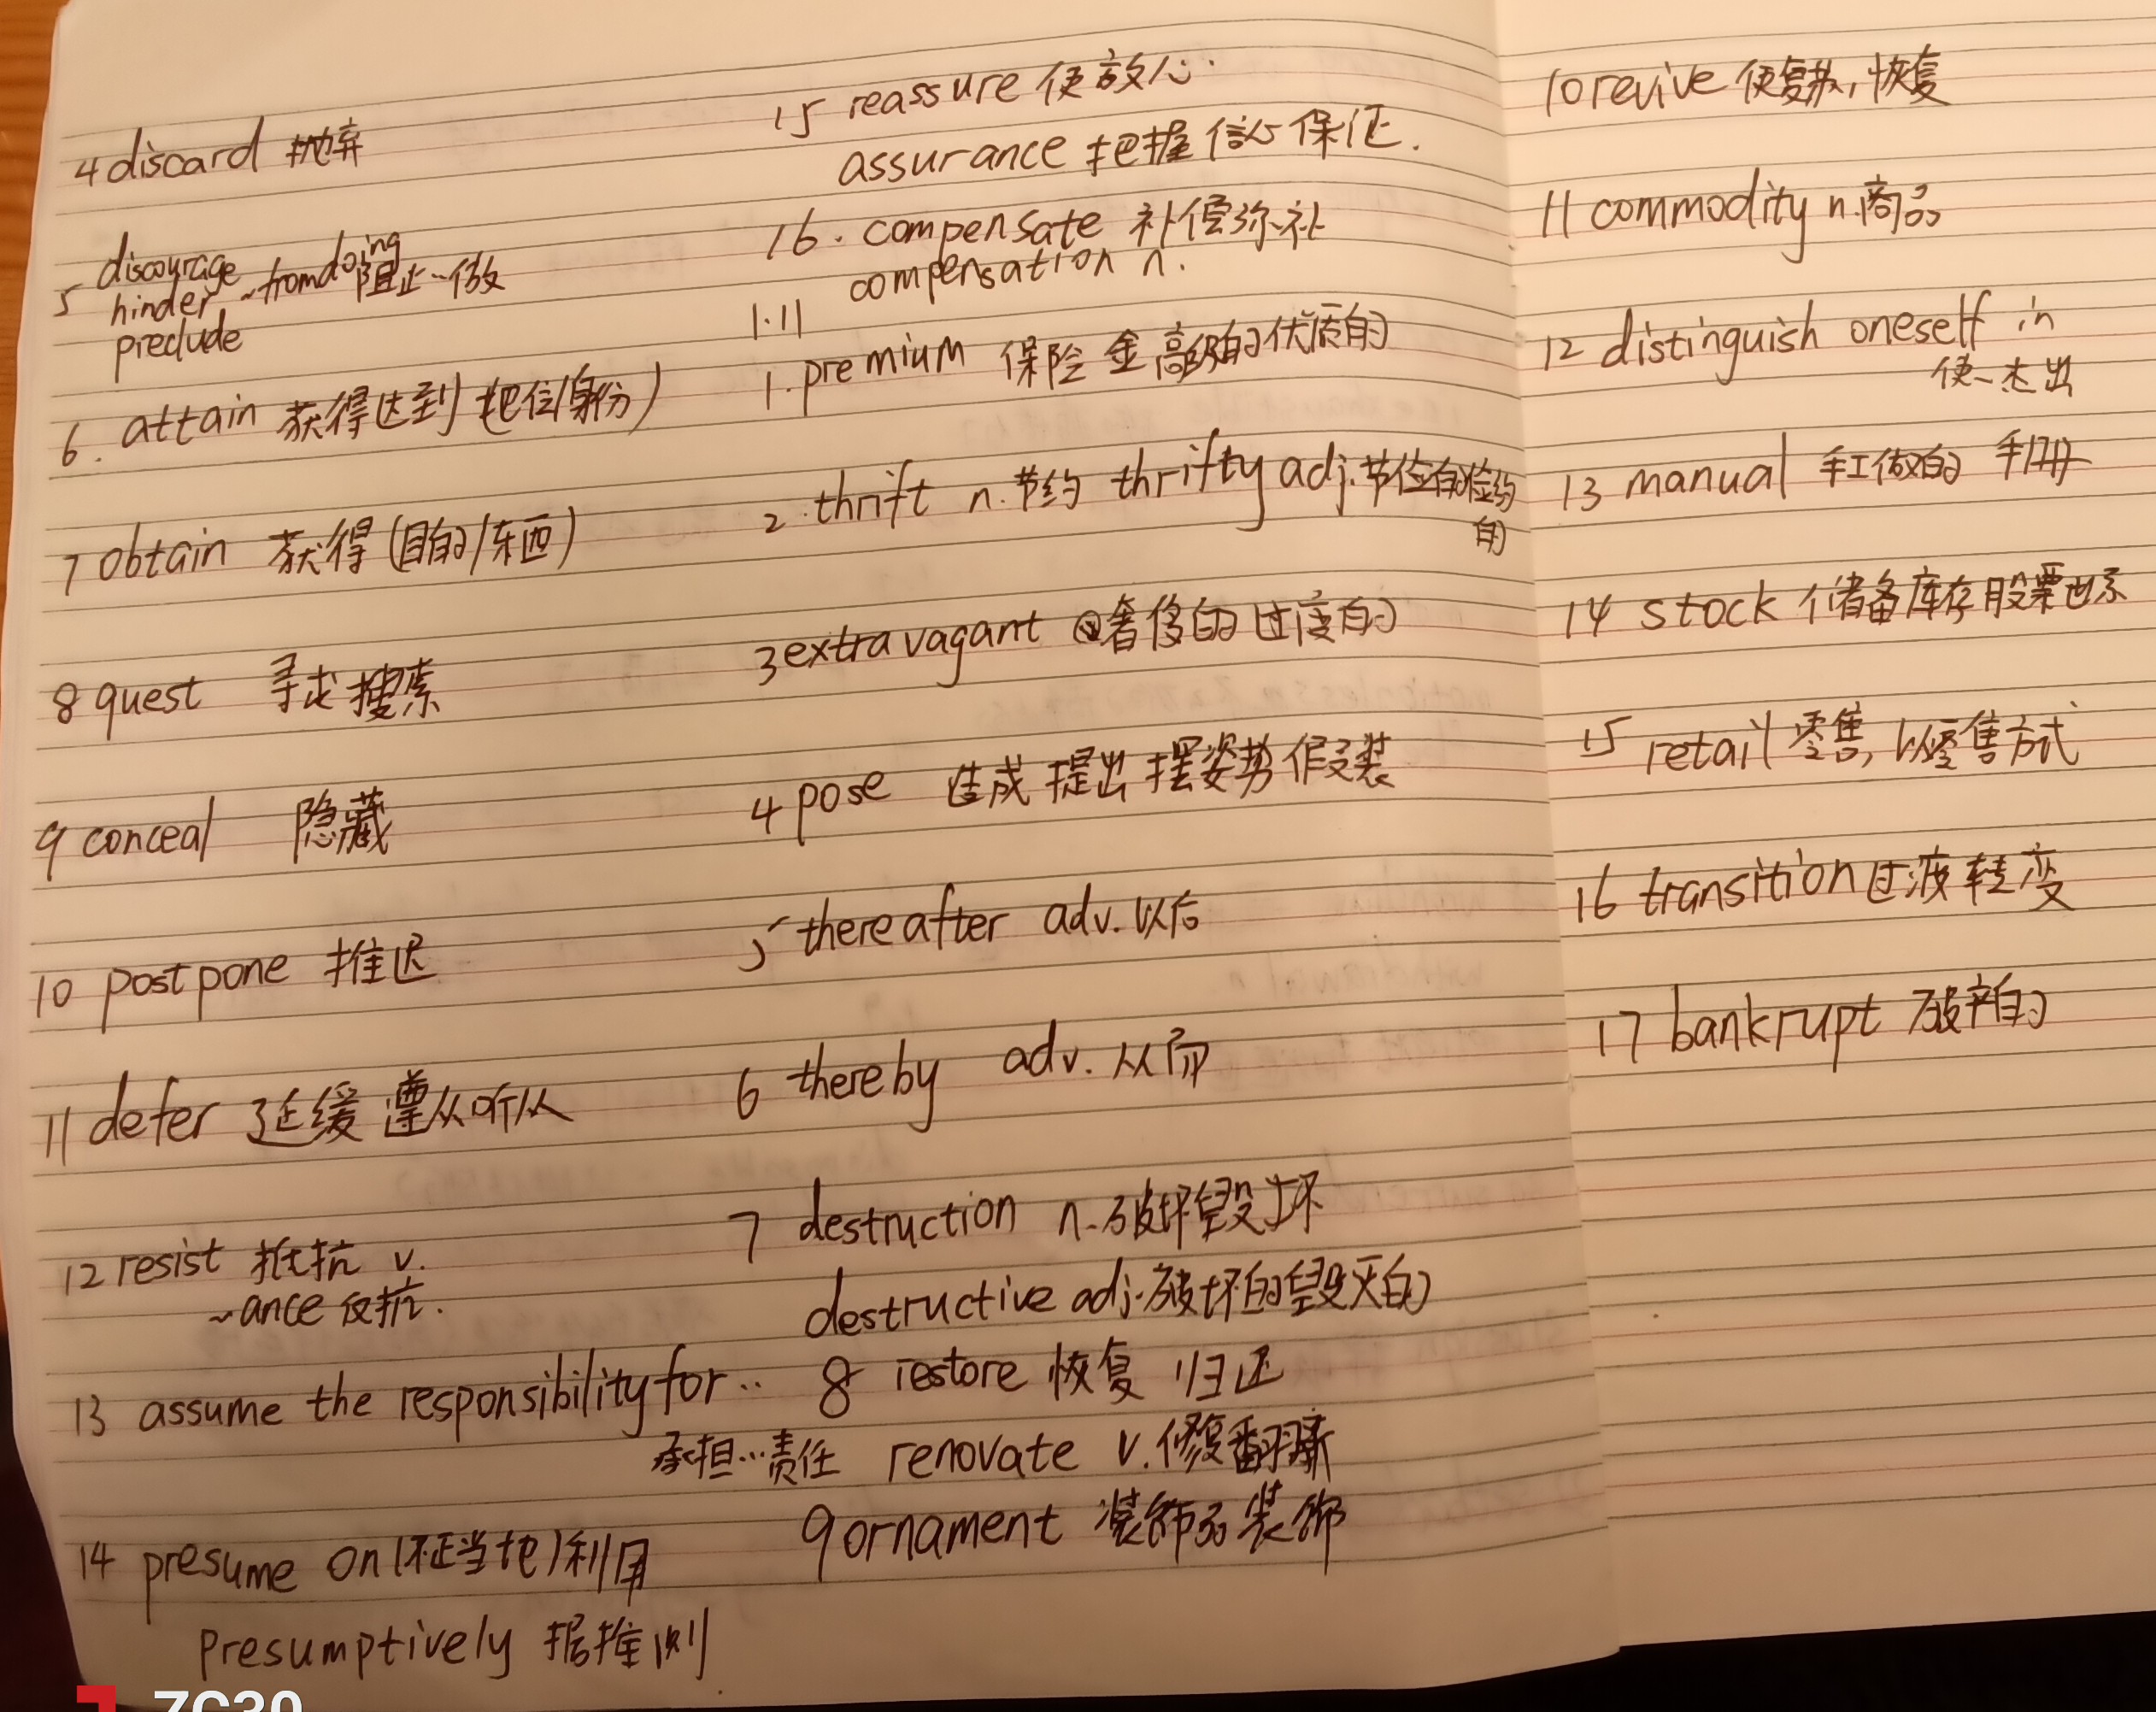 4 discard 抛弃
discourage
5 hinder ~from doing 阻止…做
preclude
6. attain 获得达到(地位/身份)
7 obtain 获得(目的/东西)
8 quest 寻找搜索
9 conceal 隐藏
10 postpone 推迟
11 defer 延缓 遵从听从
12 resist 抵抗 v.
~ance 反抗.
13 assume the responsibility for..
承担…责任
14 presume on(不正当地)利用
presumptively 据推测
15 reassure 使放心.
assurance 把握 信心 保证.
16. compensate 补偿弥补
compensation n.
1.11
1. premium 保险金 高级的优质的
2. thrift n.节约 thrifty adj.节俭的俭约的
3 extravagant 奢侈的 过度的
4 pose 造成 提出 摆姿势 假装
5 thereafter adv.以后
6 thereby adv.从而
7 destruction n.破坏毁坏
destructive adj.破坏的毁灭的
8 restore 恢复 归还
renovate v.修复翻新
9 ornament 装饰品 装饰
10 revive 使复苏,恢复
11 commodity n.商品
12 distinguish oneself in
使~杰出
13 manual 手工做的 手册
14 stock 储备库存股票世系
15 retail 零售,以零售方式
16 transition 过渡 转变
17 bankrupt 破产的
ZC30